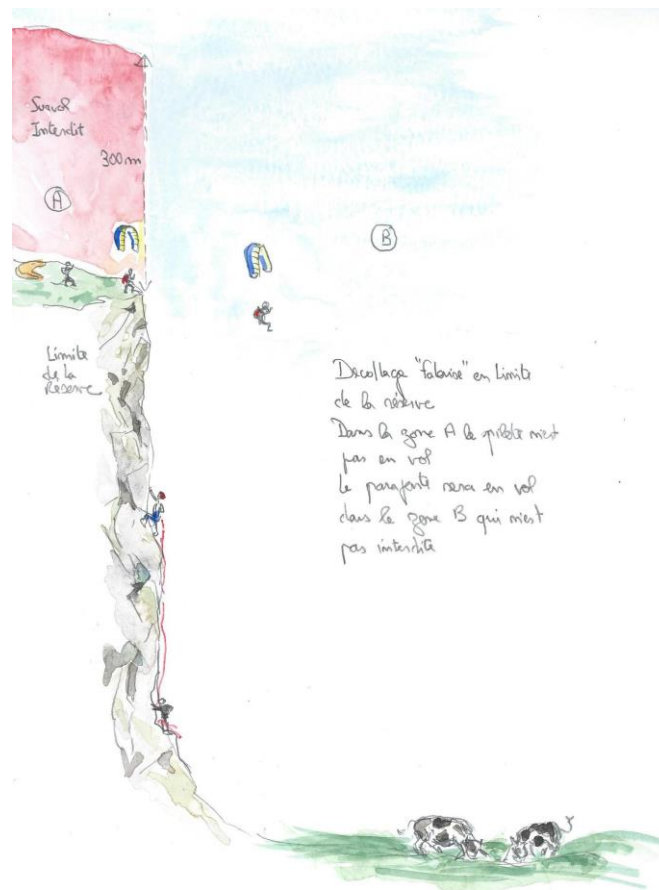 Survol
Interdit
300m
A
B
Limite
de la
Réserve
Décollage "falaise" en limite
de la réserve
Dans la zone A le pilote n'est
pas en vol
le parapente sera en vol
dans la zone B qui n'est
pas interdite